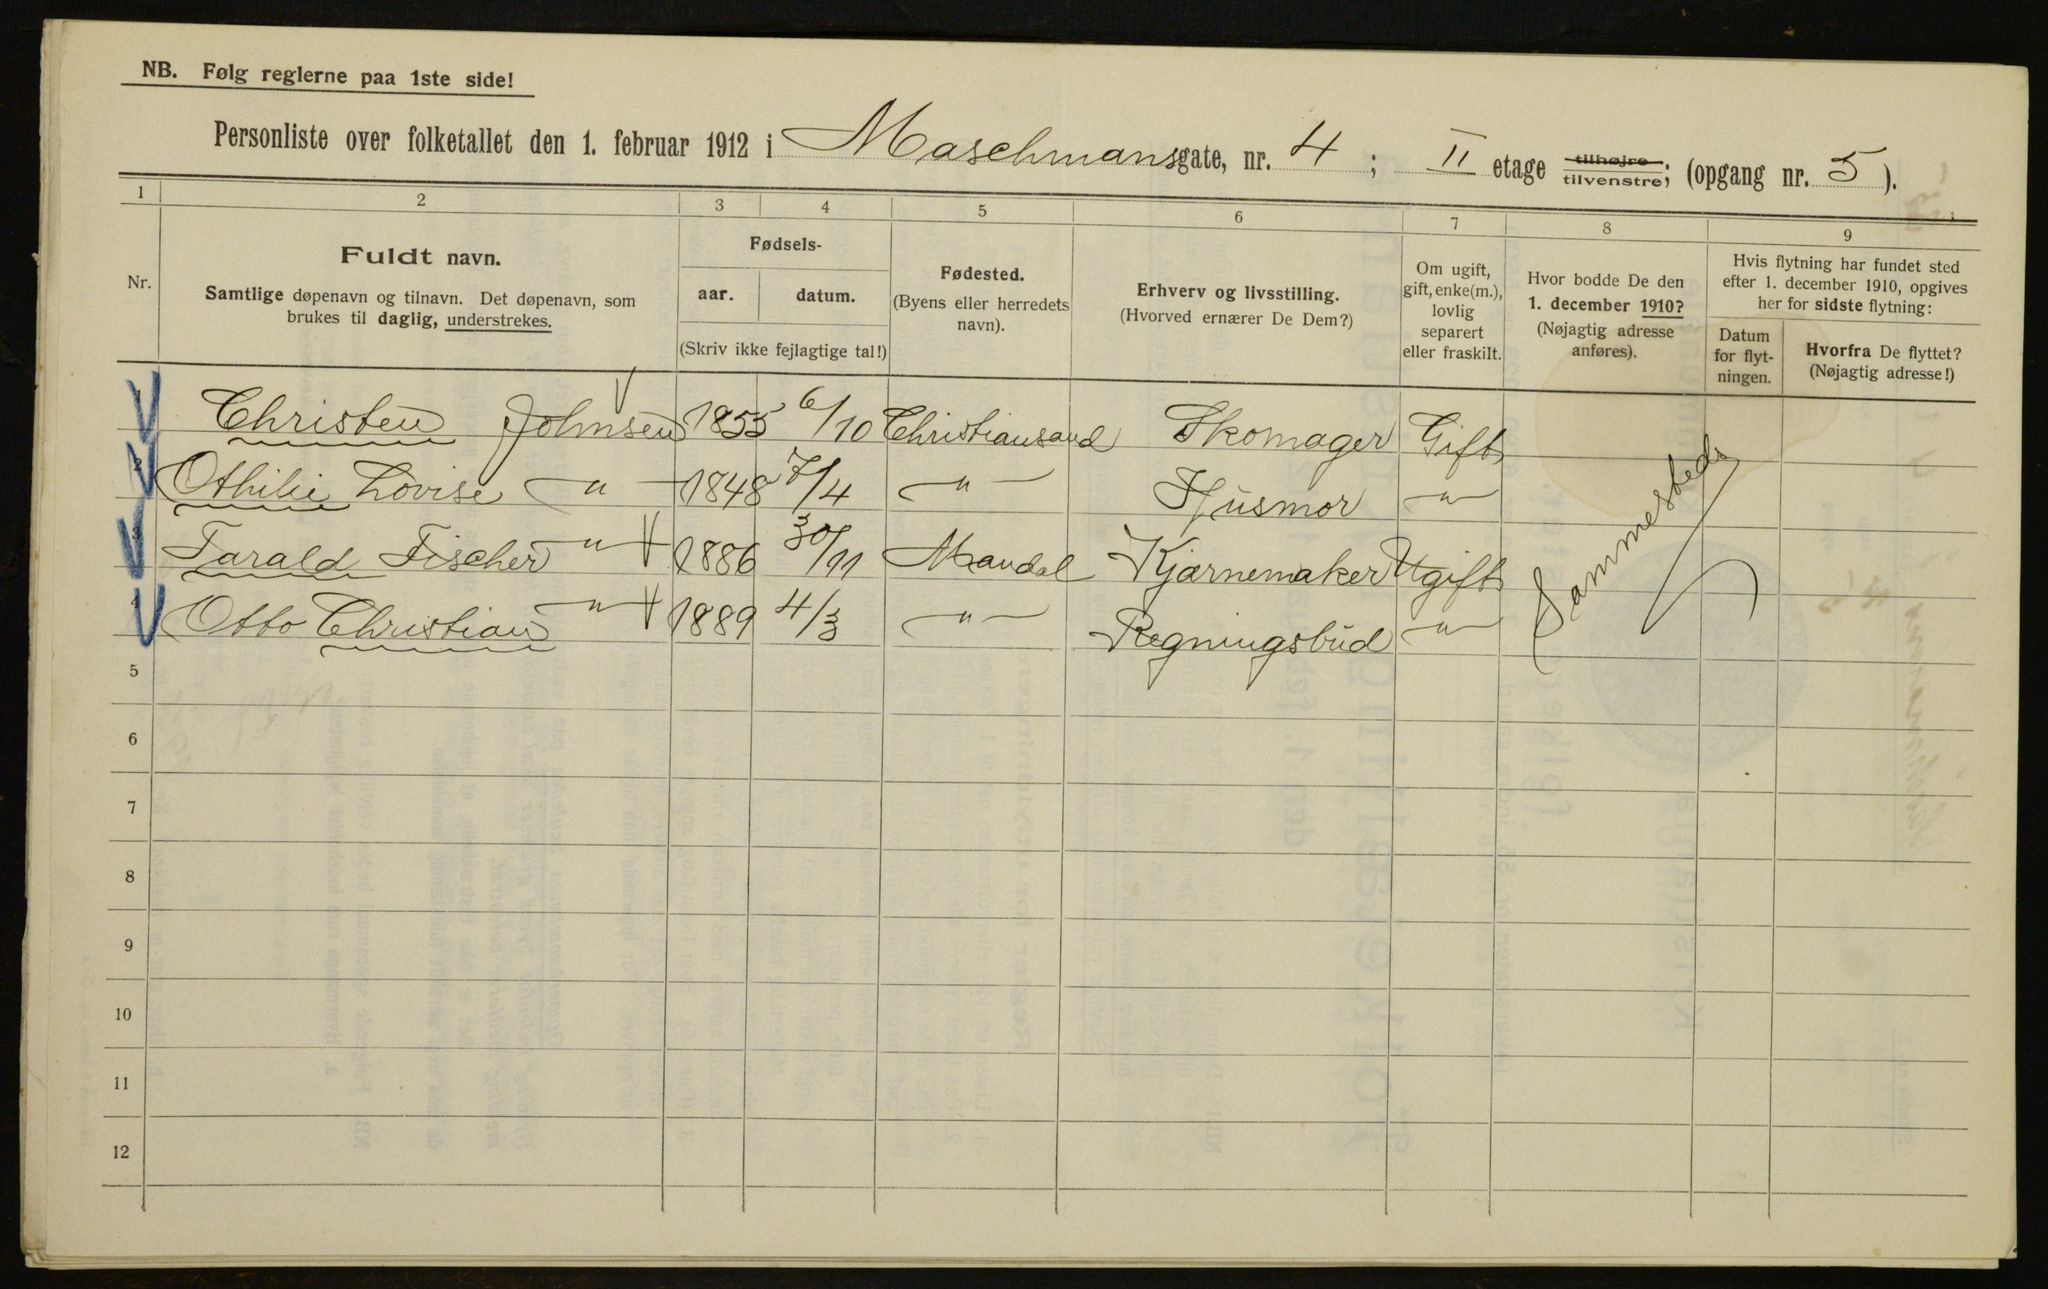 NB. Følg reglerne paa 1ste side!
Personliste over folketallet den 1. februar 1912 i Maschmansgate, nr. 4; II etage tilhøjre tilvenstre; (opgang nr. 5).
1 2 3 4 5 6 7 8 9
Nr.
Fuldt navn.
Samtlige døpenavn og tilnavn. Det døpenavn, som
brukes til daglig, understrekes.
Fødsels-
aar. datum.
(Skriv ikke fejlagtige tal!)
Fødested.
(Byens eller herredets
navn).
Erhverv og livsstilling.
(Hvorved ernærer De Dem?)
Om ugift,
gift, enke(m.),
lovlig
separert
eller fraskilt.
Hvor bodde De den
1. december 1910?
(Nøjagtig adresse
anføres).
Hvis flytning har fundet sted
efter 1. december 1910, opgives
her for sidste flytning:
Datum
for flyt-
ningen.
Hvorfra De flyttet?
(Nøjagtig adresse!)
1 Christen Johnsen 1855 6/10 Christiansand Skomager Gift
2 Othilie Lovise " 1848 7/4 " Husmor "
3 Tarald Fischer " 1886 30/11 Mandal Kjærnemaker Ugift
4 Otto Christian " 1889 4/3 " Regningsbud "
Sammesteds
5
6
7
8
9
10
11
12